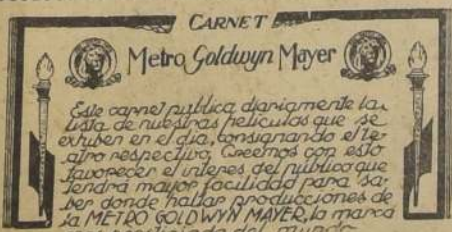 CARNET
Metro Goldwyn Mayer
Este carnet publica diariamente la
lista de nuestras películas que se
exhiben en el día, consignando el te-
atro respectivo. Creemos con esto
favorecer el interes del público que
tendrá mayor facilidad para sa-
ber donde hallar producciones de
la METRO GOLDWYN MAYER, la marca
del mundo